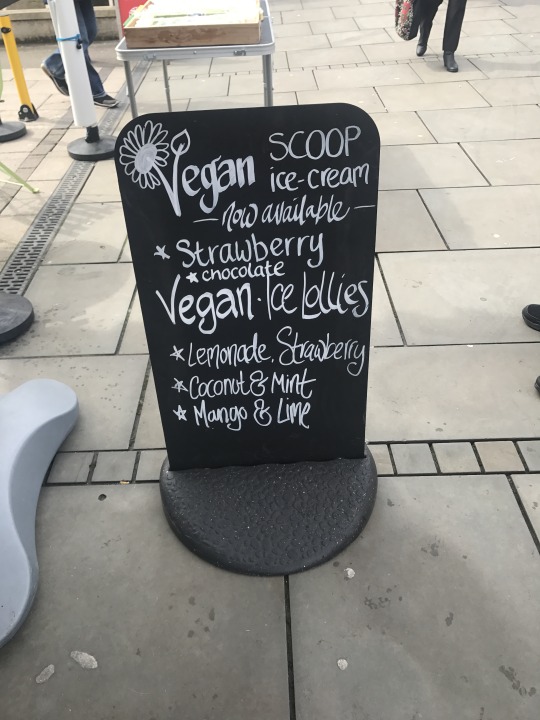 Vegan SCOOP
ice-cream
— now available —
* Strawberry
* chocolate
Vegan · Ice Lollies
* Lemonade, Strawberry
* Coconut & Mint
* Mango & Lime